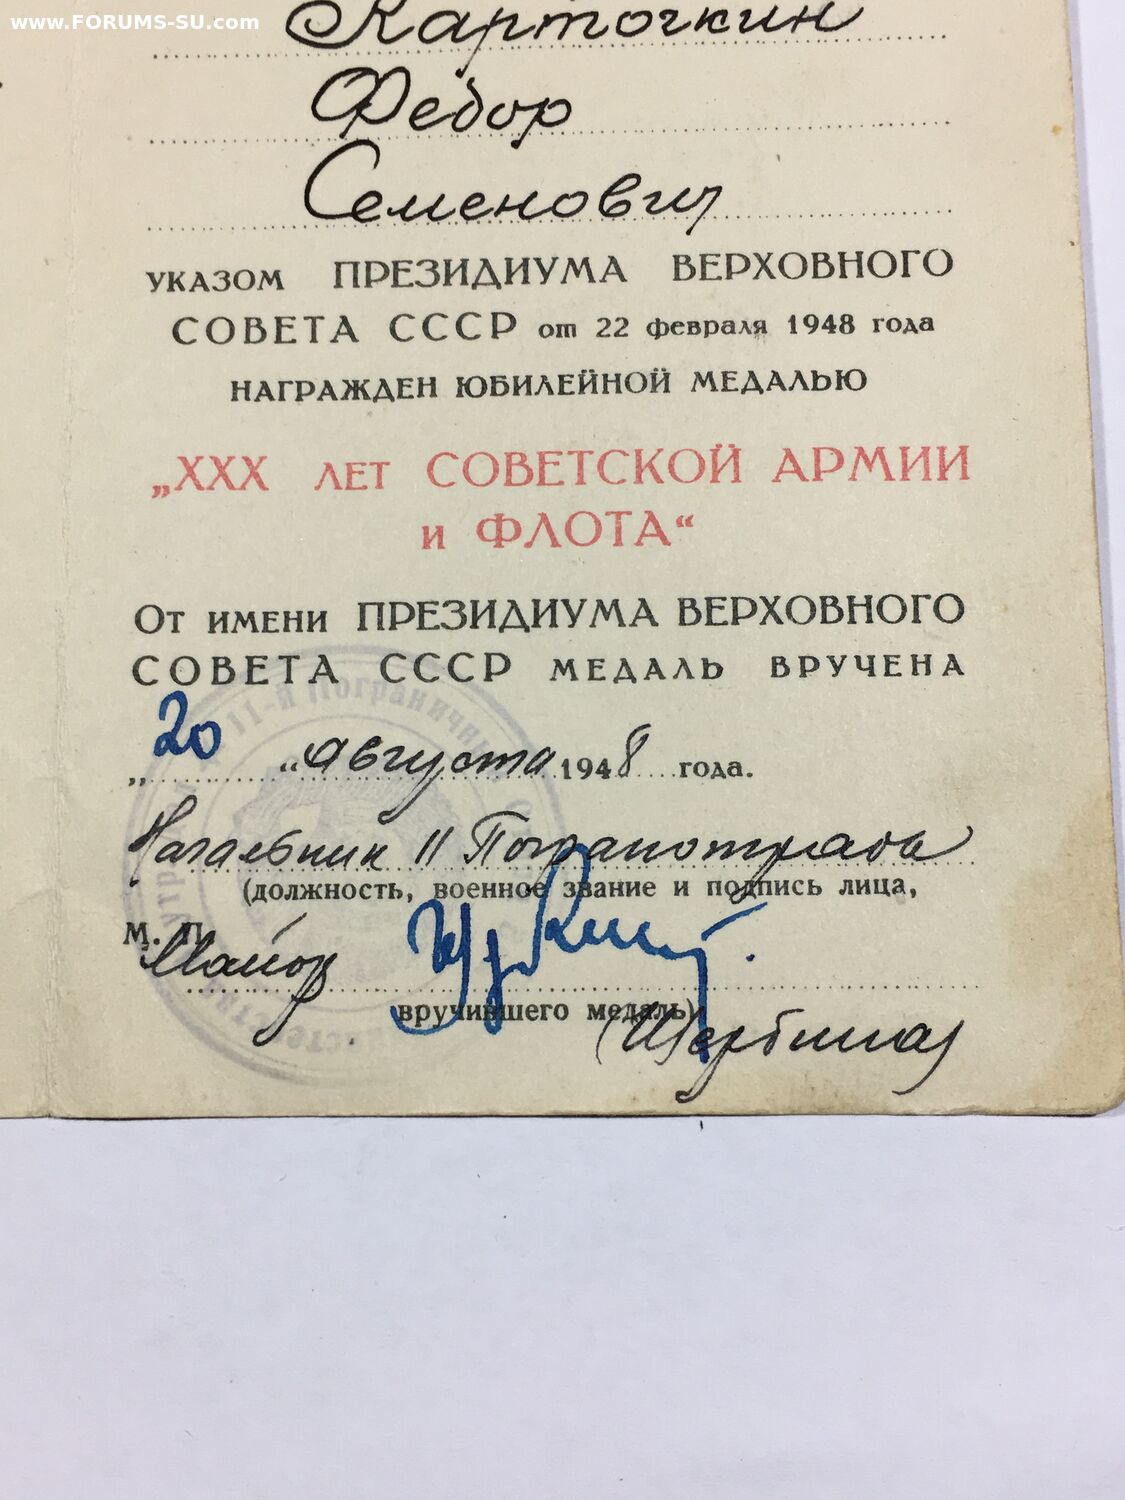 www.FORUMS-SU.com
Карточкин
Федор
Семенович
УКАЗОМ ПРЕЗИДИУМА ВЕРХОВНОГО
СОВЕТА СССР от 22 февраля 1948 года
НАГРАЖДЕН ЮБИЛЕЙНОЙ МЕДАЛЬЮ
„XXX ЛЕТ СОВЕТСКОЙ АРМИИ
и ФЛОТА“
От имени ПРЕЗИДИУМА ВЕРХОВНОГО
СОВЕТА СССР МЕДАЛЬ ВРУЧЕНА
„20“ августа 1948 года.
Начальник 11 Погранотряда
(должность, военное звание и подпись лица,
М. П.
Майор
вручившего медаль)
(Щербина)
11-й Погранични